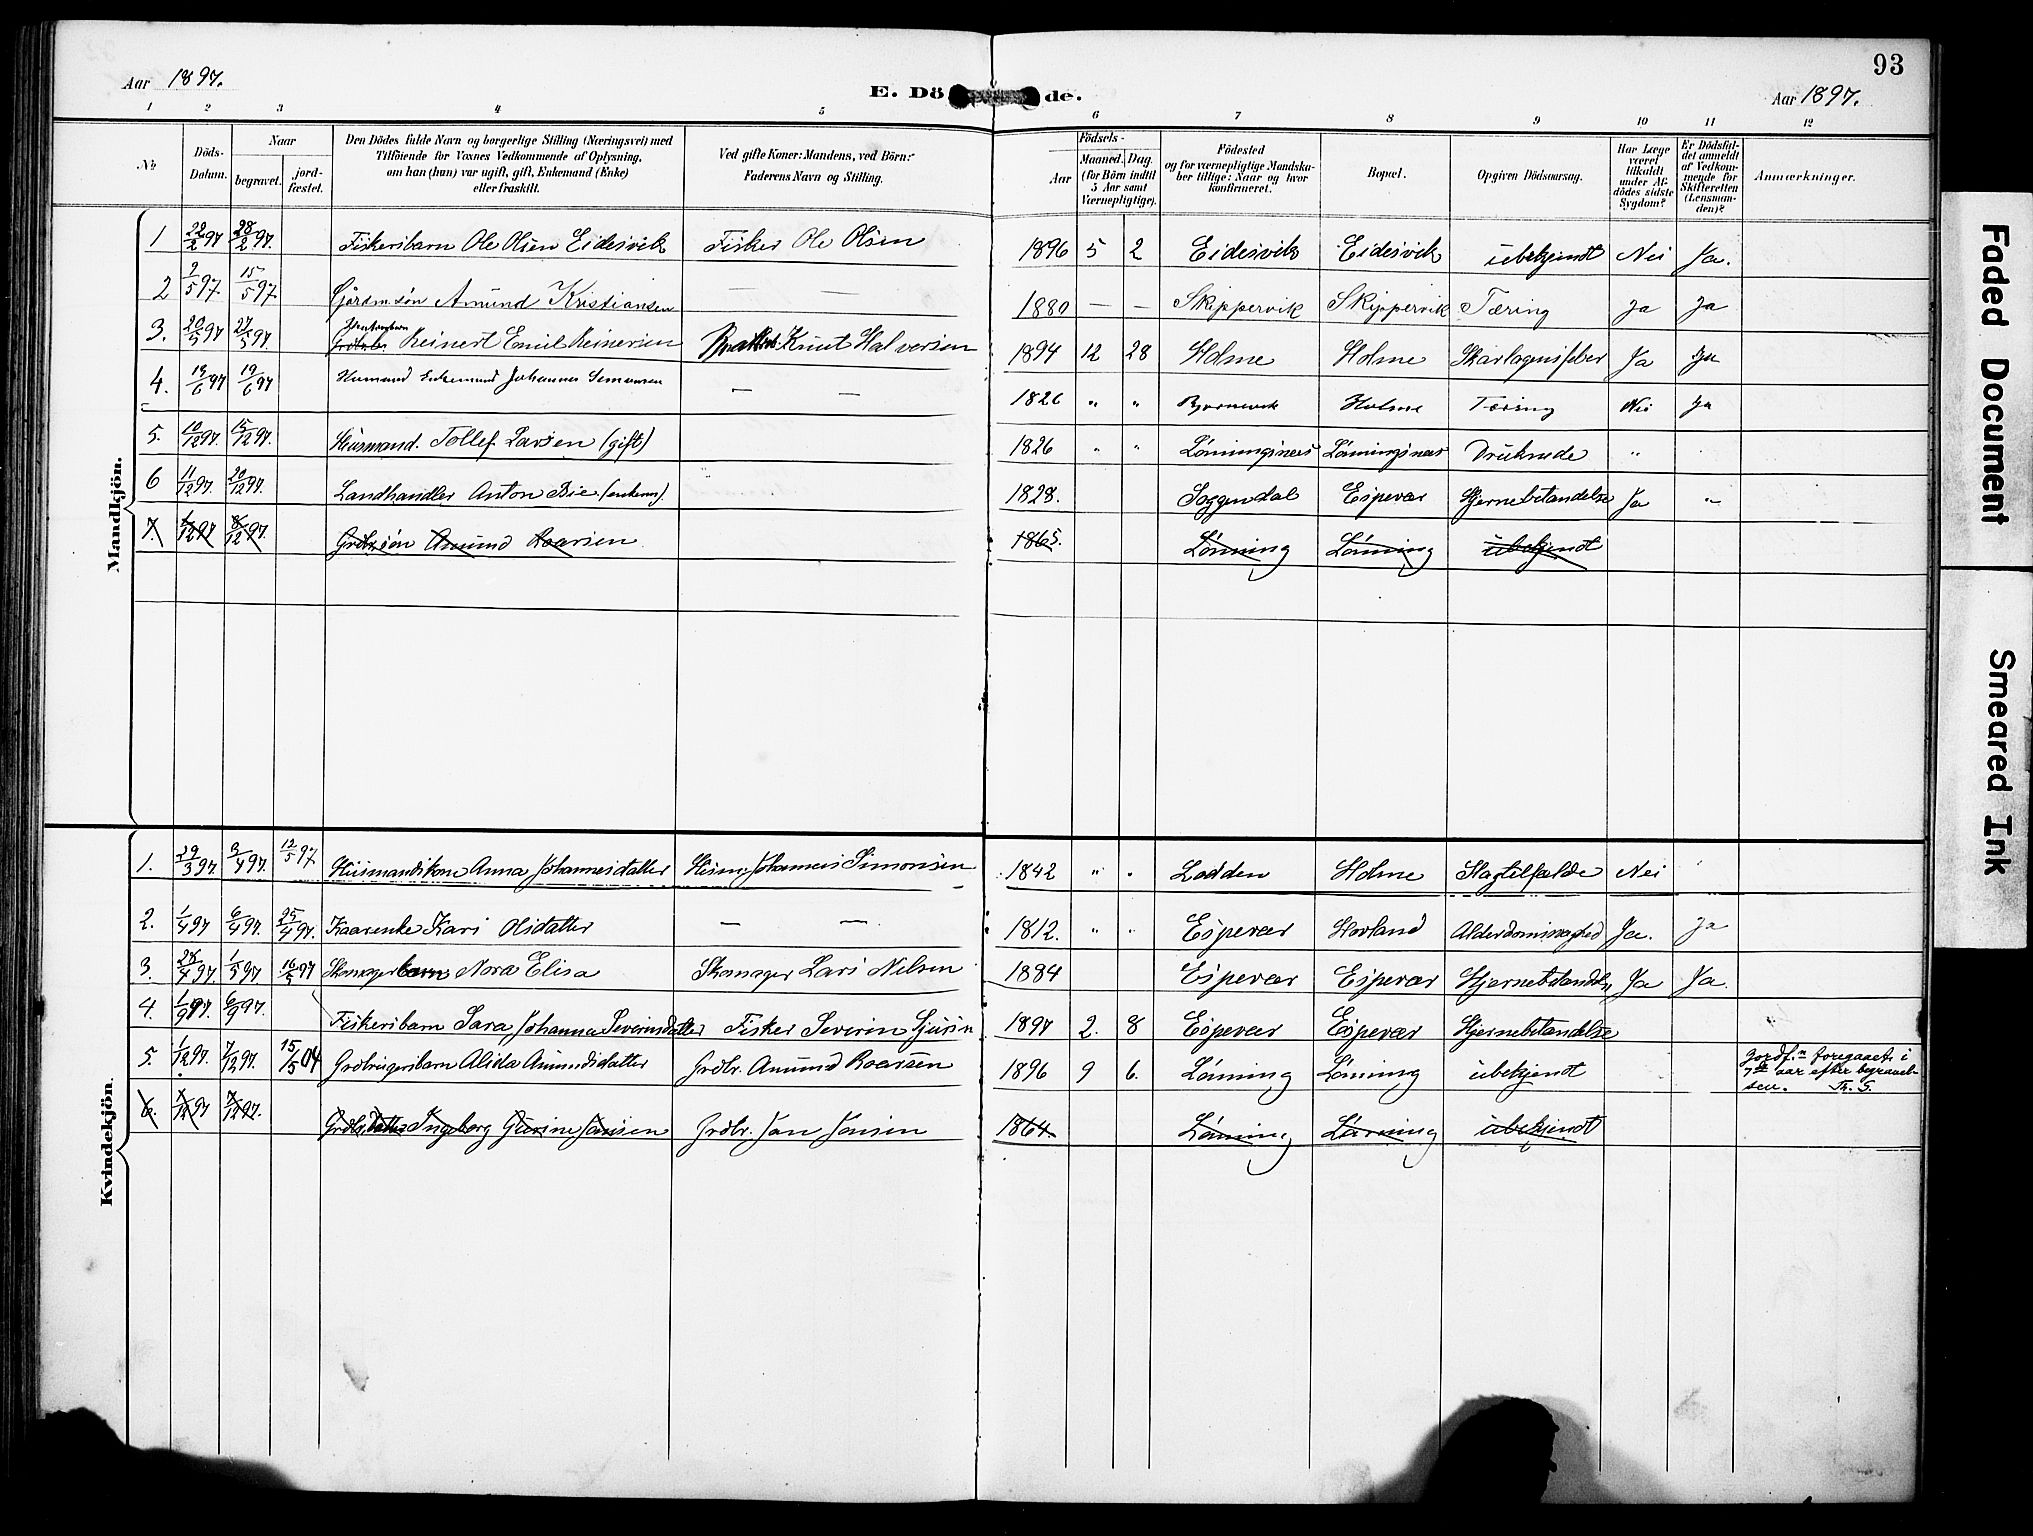 93
Aar 1897. E. Dö de. Aar 1897.
1 2 3 4 5 6 7 8 9 10 11 12
No Döds-Datum. Naar begravet. jord-fæstet. Den Dödes fulde Navn og borgerlige Stilling (Næringsvei) med Tilföiende for Voxnes Vedkommende af Oplysning, om han (hun) var ugift, gift, Enkemand (Enke) eller fraskilt. Ved gifte Koner: Mandens, ved Börn: Faderens Navn og Stilling. Födsels- Aar Maaned. Dag. (for Börn indtil 5 Aar samt Værnepligtige). Födested og for værnepligtige Mandskaber tillige: Naar og hvor konfirmeret. Bopæl. Opgiven Dödsaarsag. Har Læge været tilkaldt under Afdödes sidste Sygdom? Er Dödsfaldet anmeldt af Vedkommende for Skifteretten (Lensmanden)? Anmærkninger.
Mandkjön.
1 22/2 97 28/2 97. Fiskersbarn Ole Olsen Eidesvik Fisker Ole Olsen 1896 5 2 Eidesvik Eidesvik ubekjendt Nei Ja.
2 9/5 97. 15/5 97. Gårdmsøn Amund Kristiansen — — 1880 — — Skippervik Skippervik Tæring Ja Ja
3. 20/5 97 27/5 97. Reinert Emil Reinersen Knut Halversen 1894 12 28 Holme Holme Skarlagensfeber Ja Ja
4. 14/6 97 19/6 97 Husmand Enkemand Johannes Simonsen — — 1826 " " Holme Tæring Nei Ja
5. 10/12 97. 15/12 97. Husmand. Tollef Larsen (gift) 1826 " " Lønningsnes Lønningsnes "
6 11/12 97. 20/12 97. Landhandler Anton Bie (enkem.) 1828. Soggendal Espevær Hjernebetændelse Ja "
7. 1/12 97 8/12 97. Grdbr.søn Amund Roarsen 1865. Lønning Lønning ubekjendt
Kvindekjön.
1. 29/3 97 3/4 97. 12/5 97 Husmandskone Anna Johannesdatter Husm. Johannes Simonsen 1842 " " Lodden Holme Slagtilfælde Nei
2. 1/4 97 6/4 97. 25/4 97. Kaarenke Kari Olsdatter — — 1812. " " Espevær Hovland Alderdomssvaghed Ja. Ja
3. 28/4 97. 1/5 97 16/5 97 Skomagerbarn Nora Elisa Skomager Lars Nelsen 1884 Espevær Espevær Hjernebetændelse Ja Ja.
4. 1/9 97. 6/9 97. Fiskersbarn Sara Johanna Severinsdatter Fisker Severin Sjursen 1897 2. 8 Espevær Espevær Hjernebetændelse
5. 1/12 97. 7/12 97. 15/5 04 Grdbrugersbarn Alida Amundsdatter Grdbr. Amund Roarsen 1896 9 6. Lønning Lønning ubekjendt Jordf.n foregaaet i 7de aar efter begravelsen. Th. S.
6. 7/12 97. Grdbrdatter Ingeborg Gurine Jansen Grdbr. Jan Jansen 1864. Lønning Lønning ubekjendt
Faded Document
Smeared Ink